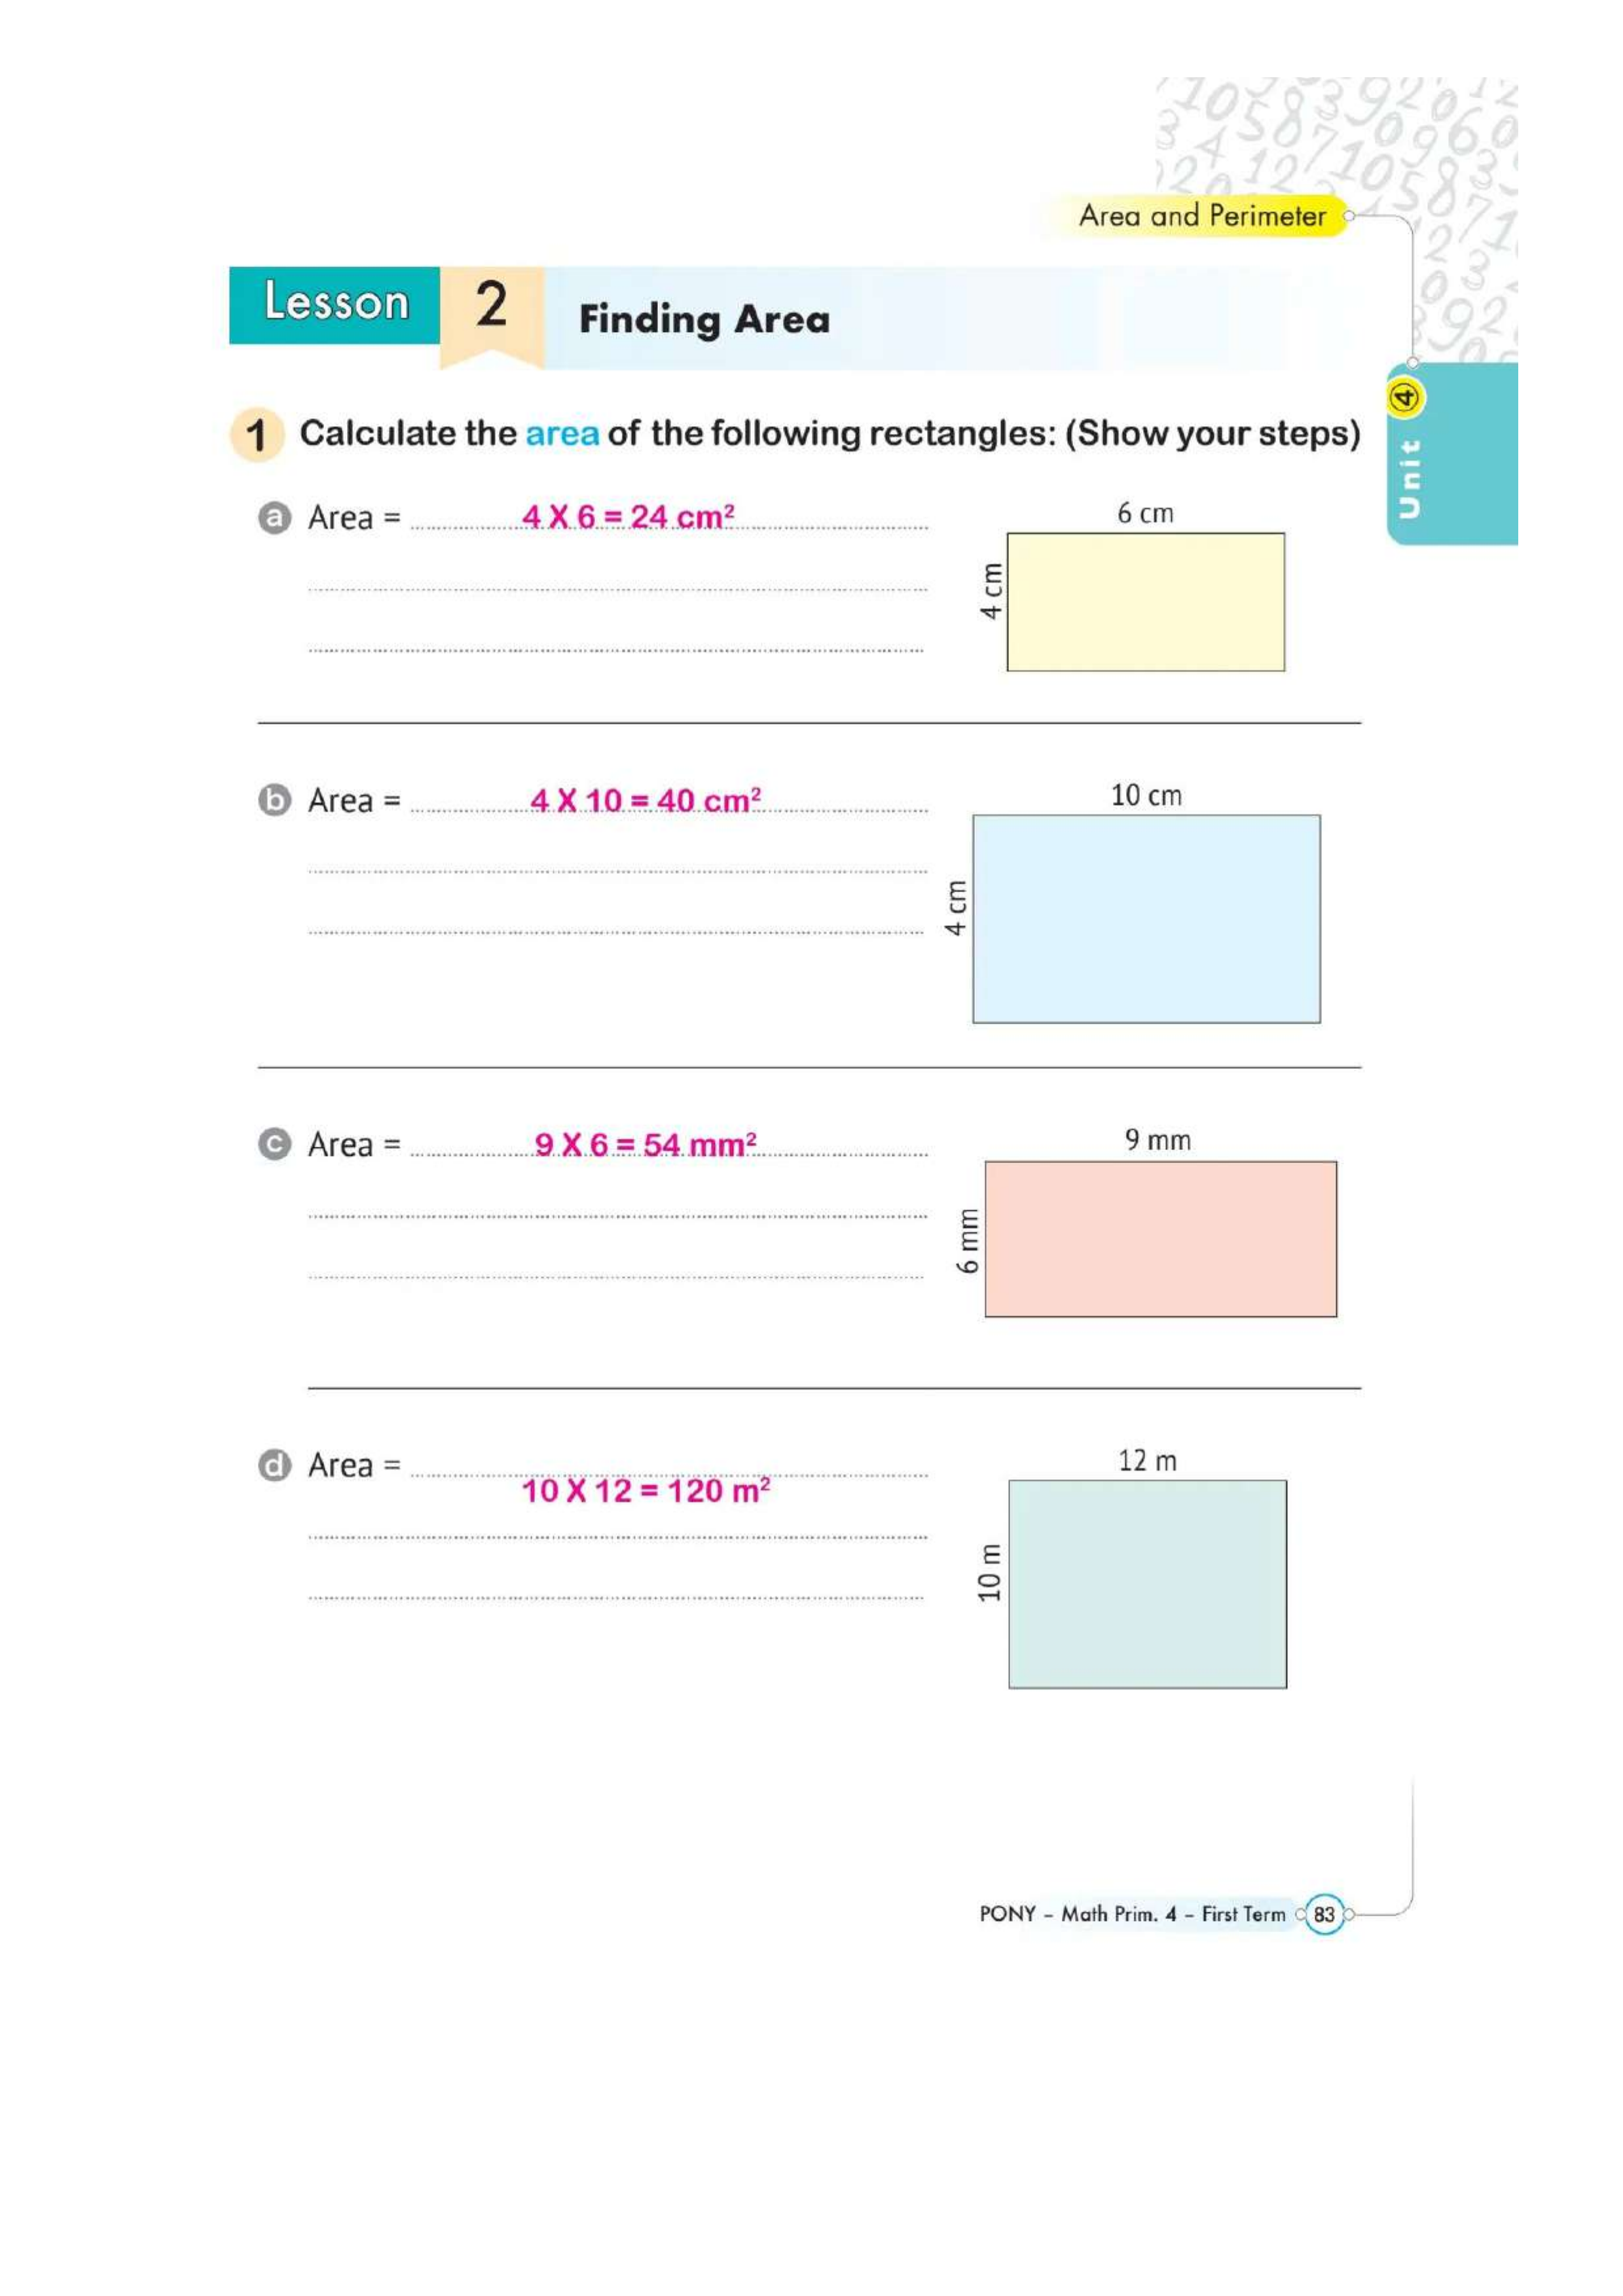 Area and Perimeter
Lesson 2 Finding Area
Unit 4
1 Calculate the area of the following rectangles: (Show your steps)
a Area = 4 X 6 = 24 cm²
6 cm
4 cm
b Area = 4 X 10 = 40 cm²
10 cm
4 cm
c Area = 9 X 6 = 54 mm²
9 mm
6 mm
d Area =
10 X 12 = 120 m²
12 m
10 m
PONY – Math Prim. 4 – First Term 83